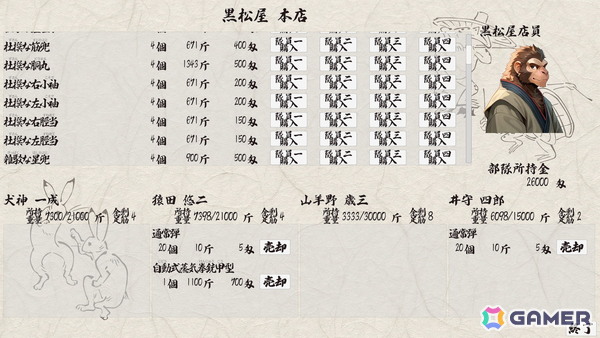 黒松屋 本店
黒松屋店員
粗撲な筋兜 4個 671斤 400匁 隊員一購入 隊員二購入 隊員三購入 隊員四購入
粗撲な胴丸 4個 1343斤 500匁 隊員一購入 隊員二購入 隊員三購入 隊員四購入
粗撲な右小袖 4個 671斤 200匁 隊員一購入 隊員二購入 隊員三購入 隊員四購入
粗撲な左小袖 4個 671斤 200匁 隊員一購入 隊員二購入 隊員三購入 隊員四購入
粗撲な右脛当 4個 671斤 150匁 隊員一購入 隊員二購入 隊員三購入 隊員四購入
粗撲な左脛当 4個 671斤 150匁 隊員一購入 隊員二購入 隊員三購入 隊員四購入
雑駁な星兜 4個 900斤 500匁 隊員一購入 隊員二購入 隊員三購入 隊員四購入
部隊所持金
26000 匁
犬神 一成
所持重量 7300/21000 斤 余剰足筋 4
猿田 悠二
所持重量 7398/21000 斤 余剰足筋 4
通常弾
20個 10斤 5匁 売却
自動式蒸気拳銃甲型
1個 1100斤 700匁 売却
山羊野 歳三
所持重量 3333/30000 斤 余剰足筋 8
井守 四郎
所持重量 6098/15000 斤 余剰足筋 2
通常弾
20個 10斤 5匁 売却
GAMER
終了